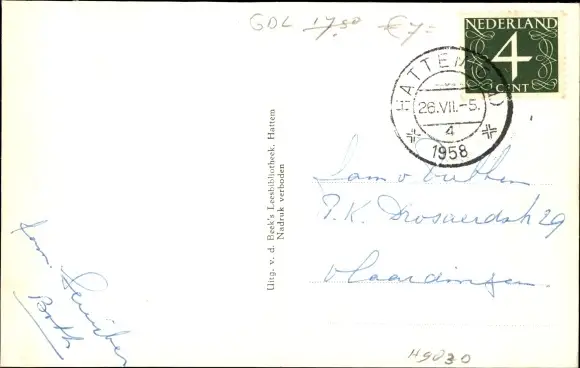 GDL 17,50 €7=
NEDERLAND
4
CENT
HATTEM
26.VII.-5.
4
1958
Uitg. v. d. Beek's Leesbibliotheek, Hattem
Nadruk verboden
Fam v.
P.K. Drossaerdstr 29
Vlaardingen.
Fam.
Both
H9030